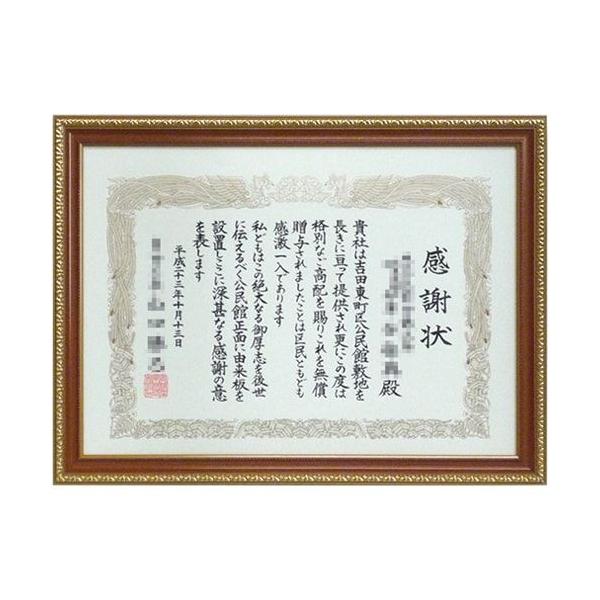 感謝状
殿
貴社は吉田東町区公民館敷地を
長きに亘って提供され更にこの度は
格別なご高配を賜りこれを無償
贈与されましたことは区民ともども
感激一入であります
私どもはこの絶大なる御厚志を後世
に伝えるべく公民館正面に由来板を
設置しここに深甚なる感謝の意
を表します
平成二十三年十月十三日